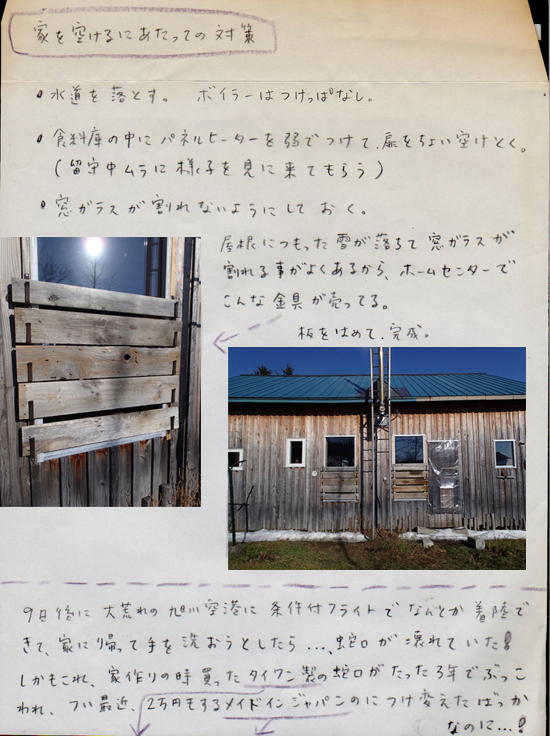 家を空けるにあたっての対策
• 水道を落とす。 ボイラーはつけっぱなし。
• 食料庫の中にパネルヒーターを弱でつけて、扉をちょい空けとく。
(留守中ムラに様子を見に来てもらう)
• 窓ガラスが割れないようにしておく。
屋根につもった雪が落ちて窓ガラスが
割れる事がよくあるから、ホームセンターで
こんな金具が売ってる。
板をはめて、完成。
9日後に大荒れの旭川空港に条件付フライトでなんとか着陸で
きて、家に帰って手を洗おうとしたら…、蛇口が壊れていた!
しかもこれ、家作りの時買ったタイワン製の蛇口がたった3年でぶっこ
われ、つい最近、2万円もするメイドインジャパンのにつけ変えたばっか
なのに…!